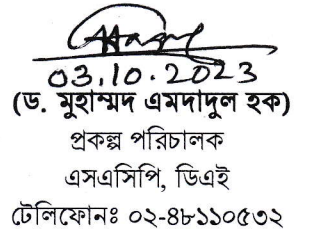 03.10.2023
(ড. মুহাম্মদ এমদাদুল হক)
প্রকল্প পরিচালক
এসএসিপি, ডিএই
টেলিফোনঃ ০২-৪৮১১০৫৩২